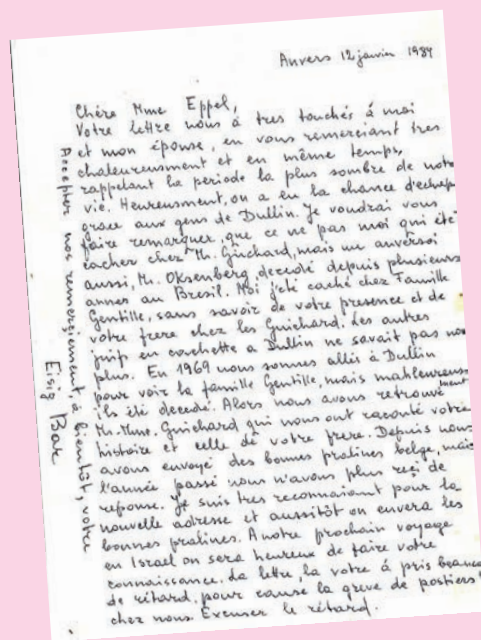 Anvers 12 janvier 1984
Chère Mme Eppel,
Votre lettre nous à tres touchés á moi
et mon épouse, en vous remerciant tres
chaleureusment et en même temps,
rappelant la periode la plus sombre de notre
vie. Heureusment, on a eu la chance d'echap
grace aux gens de Dullin. Je voudrai vous
faire remarquer, que ce ne pas moi qui été
cacher chez Mr. Guichard, mais un anversoi
aussi, Mr. Oksenberg, decedé depuis plusieurs
annes au Bresil. Moi j'été caché chez Famille
Gentille, sans savoir de votre presence et de
votre frere chez les Guichard. Les autres
juif en cachette a Dullin ne savait pas non
plus. En 1969 nous sommes allés à Dullin
pour voir la famille Gentille, mais mahleureuse
ment
ils été decedé. Alors nous avons retrouvé
Mr. Mme. Guichard qui nous ont raconté votre
histoire et celle de votre frere. Depuis nous
avons envoyé des bonnes pralines belge, mais
l'année passé nous n'avons plus reçi de
reponse. Je suis tres reconnaiant pour la
nouvelle adresse et aussitôt on envera les
bonnes pralines. A notre prochain voyage
en Israel on sera heureux de faire votre
connaissance. La lettre, la votre á pris beauco
de rétard, pour cause la greve de postiers
chez nous. Excuser le rétard.
Accepter nos remerciement, à bientôt, votre
Eisig Bar